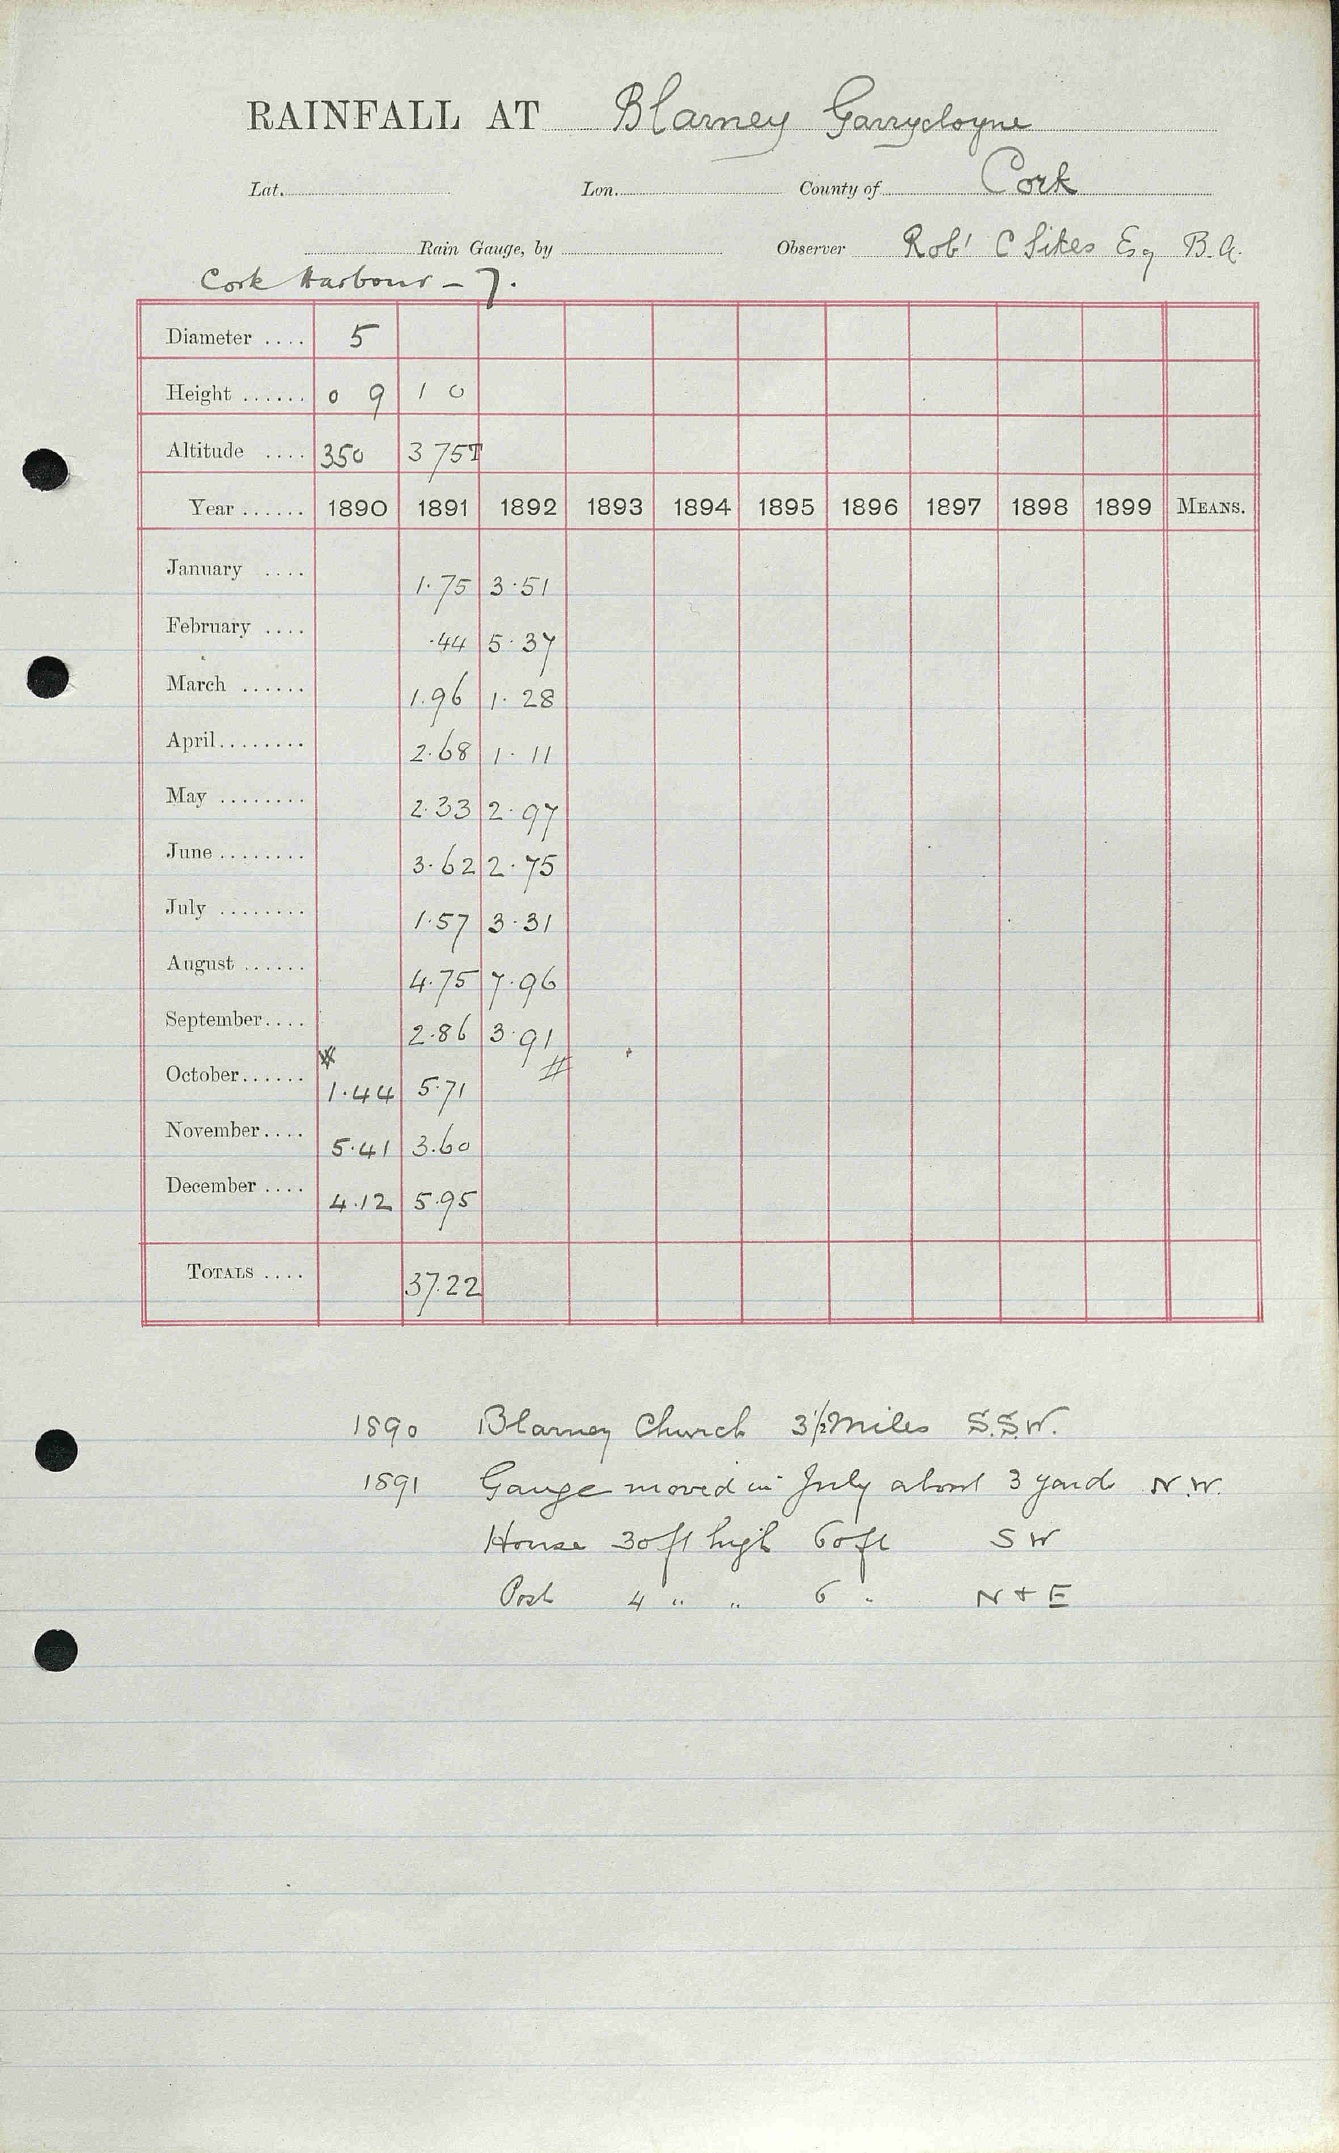 RAINFALL AT Blarney Garrycloyne
Lat. Lon. County of Cork
Rain Gauge, by Observer Robt C Sikes Esq B.A.
Cork Harbour - 7.
Diameter .... 5
Height ...... 0 9 1 0
Altitude .... 350 375T
Year ...... 1890 1891 1892 1893 1894 1895 1896 1897 1898 1899 MEANS.
January .... 1.75 3.51
February .... .44 5.37
March ...... 1.96 1.28
April........ 2.68 1.11
May ........ 2.33 2.97
June........ 3.62 2.75
July ........ 1.57 3.31
August ...... 4.75 7.96
September.... 2.86 3.91
October...... 1.44 5.71 #
November.... 5.41 3.60
December .... 4.12 5.95
TOTALS .... 37.22
1890 Blarney Church 3½ Miles S.S.W.
1891 Gauge moved in July about 3 yards N.W.
House 30ft high 60ft SW
Post 4 " " 6 " N + E